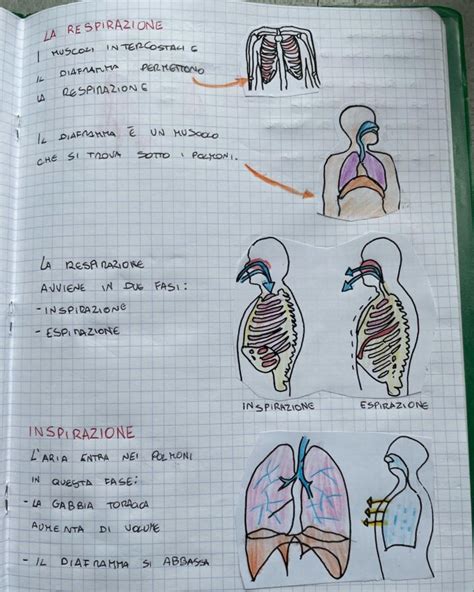 LA RESPIRAZIONE
I MUSCOLI INTERCOSTALI E
IL DIAFRAMMA PERMETTONO
LA RESPIRAZIONE
IL DIAFRAMMA È UN MUSCOLO
CHE SI TROVA SOTTO I POLMONI.
LA RESPIRAZIONE
AVVIENE IN DUE FASI:
- INSPIRAZIONE
- ESPIRAZIONE
INSPIRAZIONE ESPIRAZIONE
INSPIRAZIONE
L'ARIA ENTRA NEI POLMONI
IN QUESTA FASE:
- LA GABBIA TORACICA
AUMENTA DI VOLUME
- IL DIAFRAMMA SI ABBASSA